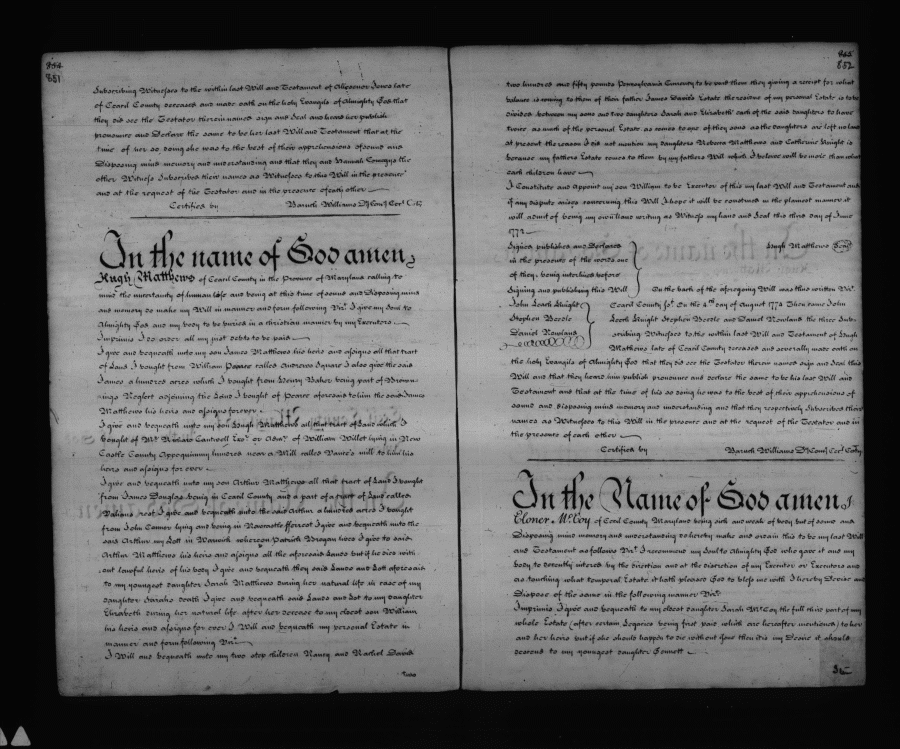 851
Subscribing Witnesses to the within last Will and Testament of Jones late
of Cecil County deceased and made oath on the holy Evangils of Almighty God that
they did see the Testator therein named sign and Seal and heard her publish
pronounce and Declare the same to be her last Will and Testament that at the
time of her so doing she was to the best of their apprehensions of sound and
Disposing mind memory and understanding and that they and Hannah the
other Witness Subscribed their names as Witnesses to this Will in the presence
and at the request of the Testator and in the presence of each other
Certified by Baruch Williams
In the name of God amen
Hugh Matthews of Cecil County in the Province of Maryland calling to
mind the uncertainty of human life and being at this time of sound and Disposing mind
and memory do make my Will in manner and form following Viz. I give my Soul to
Almighty God and my body to be buried in a christian manner by my Executors
Imprimis I do order all my just debts to be paid
I give and bequeath unto my son James Matthews his heirs and assigns all that tract
of Land I bought from William Pearce called Andrews Square I also give the said
James a hundred acres which I bought from Henry Baker being part of Brown-
nings Neglect adjoining the Land I bought of Pearce aforesaid to him the said James
Matthews his heirs and assigns forever
I give and bequeath unto my son Hugh Matthews all that tract of Land which I
bought of Mr. Richard Cantwell Exr. or Adm. of William Willet lying in New
Castle County Appoquinimy hundred near a Mill called Vance's mill to him his
heirs and assigns for ever
I give and bequeath unto my son Arthur Matthews all that tract of Land I bought
from James Douglas being in Cecil County and a part of a tract of Land called
rest I give and bequeath unto the said Arthur a hundred acres I bought
from John Conner lying and being in Newcastle I give and bequeath unto the
said Arthur my Lott in Warwick whereon Patrick lives I give to said
Arthur Matthews his heirs and assigns all the aforesaid Lands but if he dies with
out lawful heirs of his body I give and bequeath they said Lands and Lott aforesaid
to my youngest daughter Sarah Matthews during her natural life in case of my
daughter Sarahs death I give and bequeath said Lands and Lot to my daughter
Elizabeth during her natural life after her decease to my eldest son William
his heirs and assigns for ever I Will and bequeath my personal Estate in
manner and form following Viz.
I Will and bequeath unto my two step children Nancy and Rachel David
Two
852
two hundred and fifty pounds Pennsylvania Currency to be paid them they giving a receipt for what
balance is coming to them of their father James Davids Estate the residue of my personal Estate is to be
divided between my sons and two daughters Sarah and Elizabeth each of the said daughters to have
twice as much of the personal Estate as comes to one of they sons as the daughters are left no land
at present the reason I did not mention my daughters Rebecca Matthews and Catherine Knight is
because my fathers Estate comes to them by my fathers Will which I believe will be more than what
each children have
I Constitute and appoint my son William to be Executor of this my last Will and Testament and
if any dispute arises concerning this Will I hope it will be construed in the plainest manner it
will admit of being my own hand writing as Witness my hand and Seal this third day of June
Signed published and Declared
in the presence of the words one
of they, being interlined before
Signing and publishing this Will
John Leach Knight
Stephen Beedle
Daniel Rowland
Hugh Matthews Seal
On the back of the aforegoing Will was thus written Viz.
Cecil County ss. On the 4th day of August 1774 Then came John
Leech Knight Stephen Beedle and Daniel Rowland the three Sub-
scribing Witnesses to the within last Will and Testament of Hugh
Mathews late of Cecil County deceased and severally made oath on
the holy Evangils of Almighty God that they did see the Testator therein named sign and Seal this
Will and that they heard him publish pronounce and declare the same to be his last Will and
Testament and that at the time of his so doing he was to the best of their apprehensions of
sound and disposing mind memory and understanding and that they respectively Subscribed their
names as Witnesses to this Will in the presence and at the request of the Testator and in
the presence of each other
Certified by Baruch Williams
In the Name of God amen I
Eloner McCoy of Cecil County Maryland being sick and weak of body but of sound and
Disposing mind memory and understanding do hereby make and ordain this to be my last Will
and Testament as follows Viz. I recommend my Soul to Almighty God who gave it and my
body to decently interred by the direction and at the discretion of my Executor or Executors and
as touching what temporal Estate it hath pleased God to bless me with I hereby Devise and
Dispose of the same in the following manner Viz.
Imprimis I give and bequeath to my eldest daughter Sarah McCoy the full third part of my
whole Estate (after certain Legacies being first paid which are hereafter mentioned) to her
and her heirs but if she should happen to die without issue then it is my Desire it should
descend to my youngest daughter Bennett